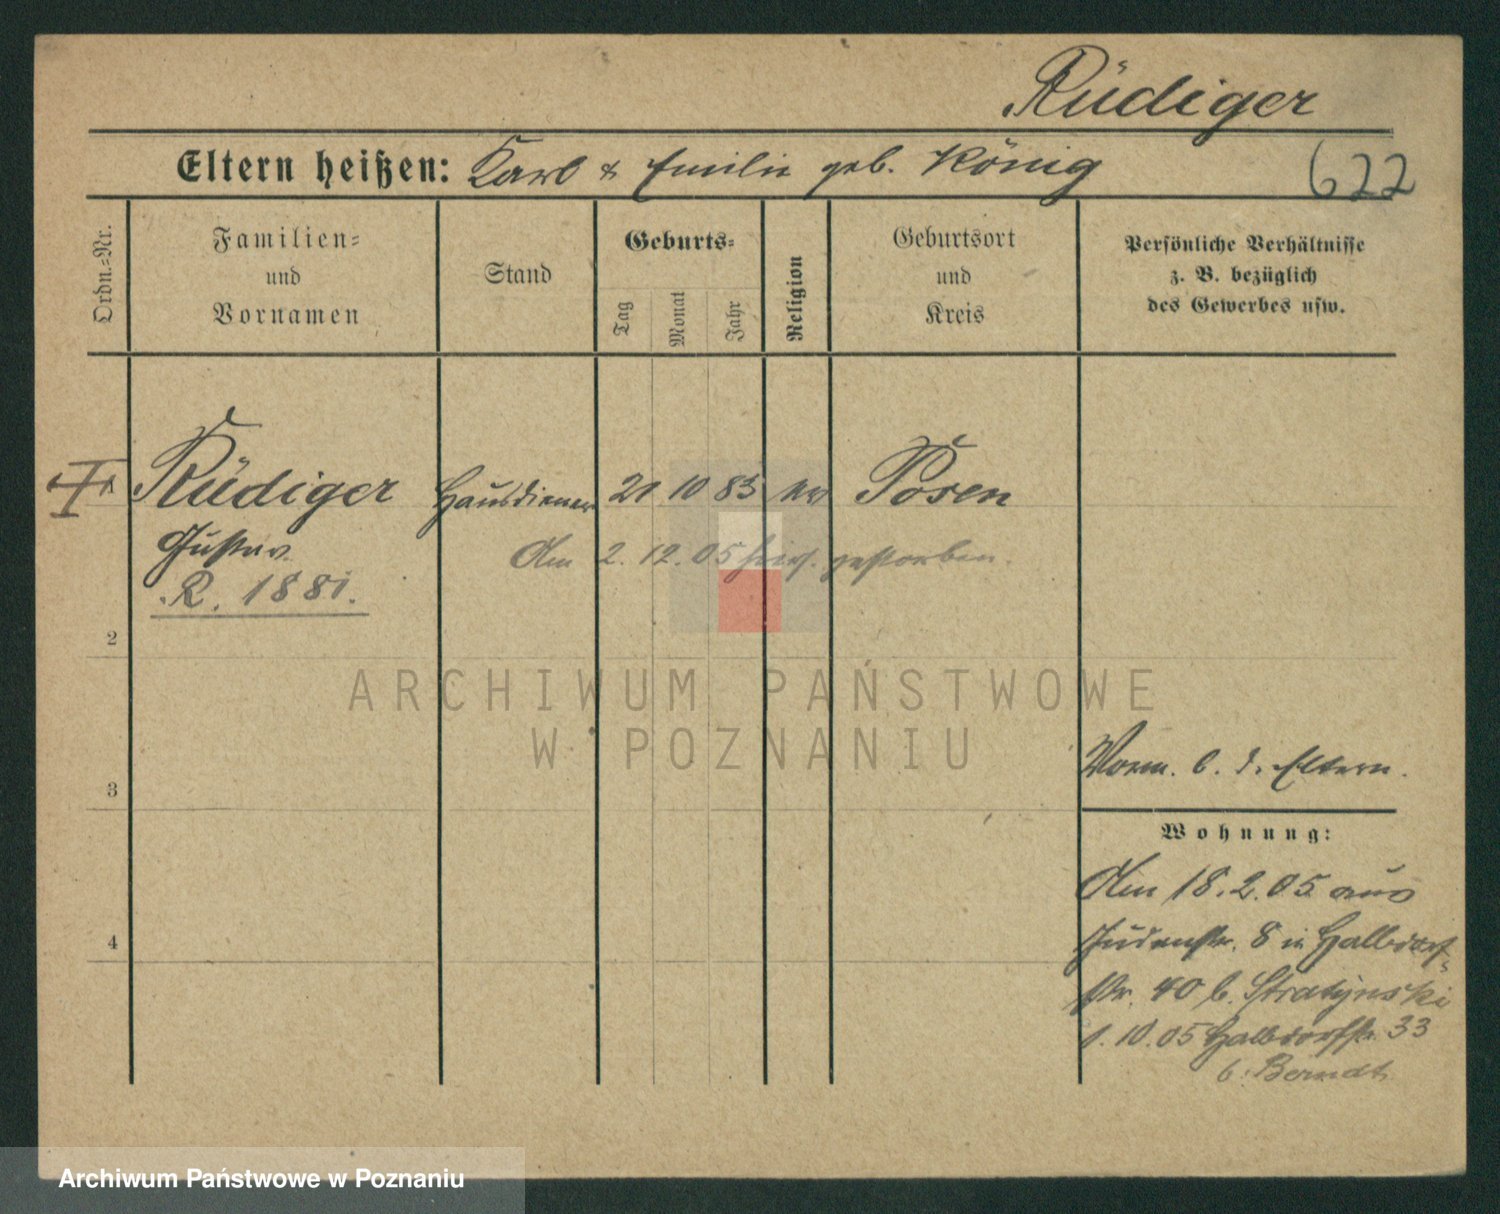 Rüdiger
Eltern heißen: Karl & Emilie geb. König
622
Ordn.=Nr.
Familien=
und
Vornamen
Stand
Geburts=
Tag
Monat
Jahr
Religion
Geburtsort
und
Kreis
Persönliche Verhältnisse
z. B. bezüglich
des Gewerbes usw.
Rüdiger Hausdiener 21 10 83 Posen
Gustav
R. 1881.
Am 2.12.05 hier gestorben.
2
3
4
Vorm. b. d. Eltern.
Wohnung:
Am 18.2.05 aus
Judenstr. 8 in Halbdorf=
str. 40 b. Stratynski
1.10.05 Halbdorfstr. 33
b. Berndt
ARCHIWUM PAŃSTWOWE
W POZNANIU
Archiwum Państwowe w Poznaniu